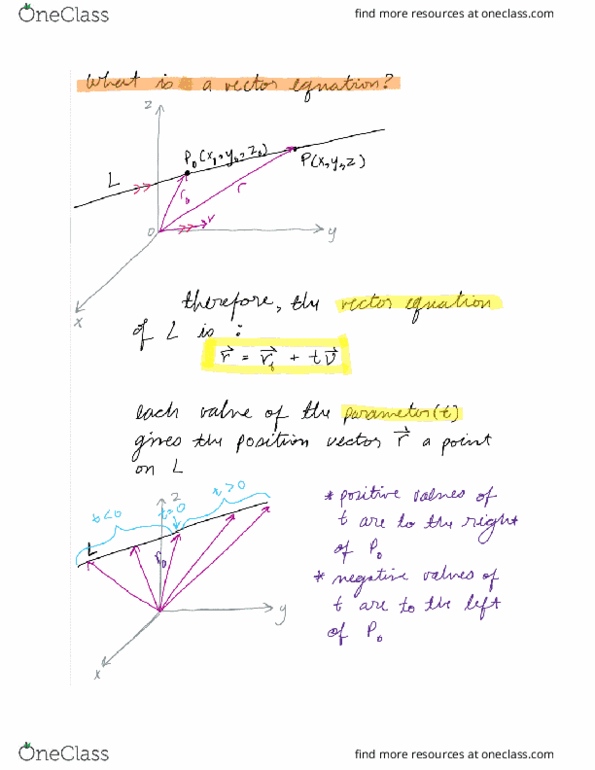 OneClass
find more resources at oneclass.com
What is a vector equation?
z
P₀(x₁,y₀,z₀)
P(x,y,z)
L
r₀
r
v
0
y
x
therefore, the vector equation
of L is :
r⃗ = r⃗₀ + t v⃗
each value of the parameter(t)
gives the position vector r⃗ a point
on L
t<0
t=0
t>0
z
L
r₀
y
x
* positive values of
t are to the right
of P₀
* negative values of
t are to the left
of P₀
OneClass
find more resources at oneclass.com